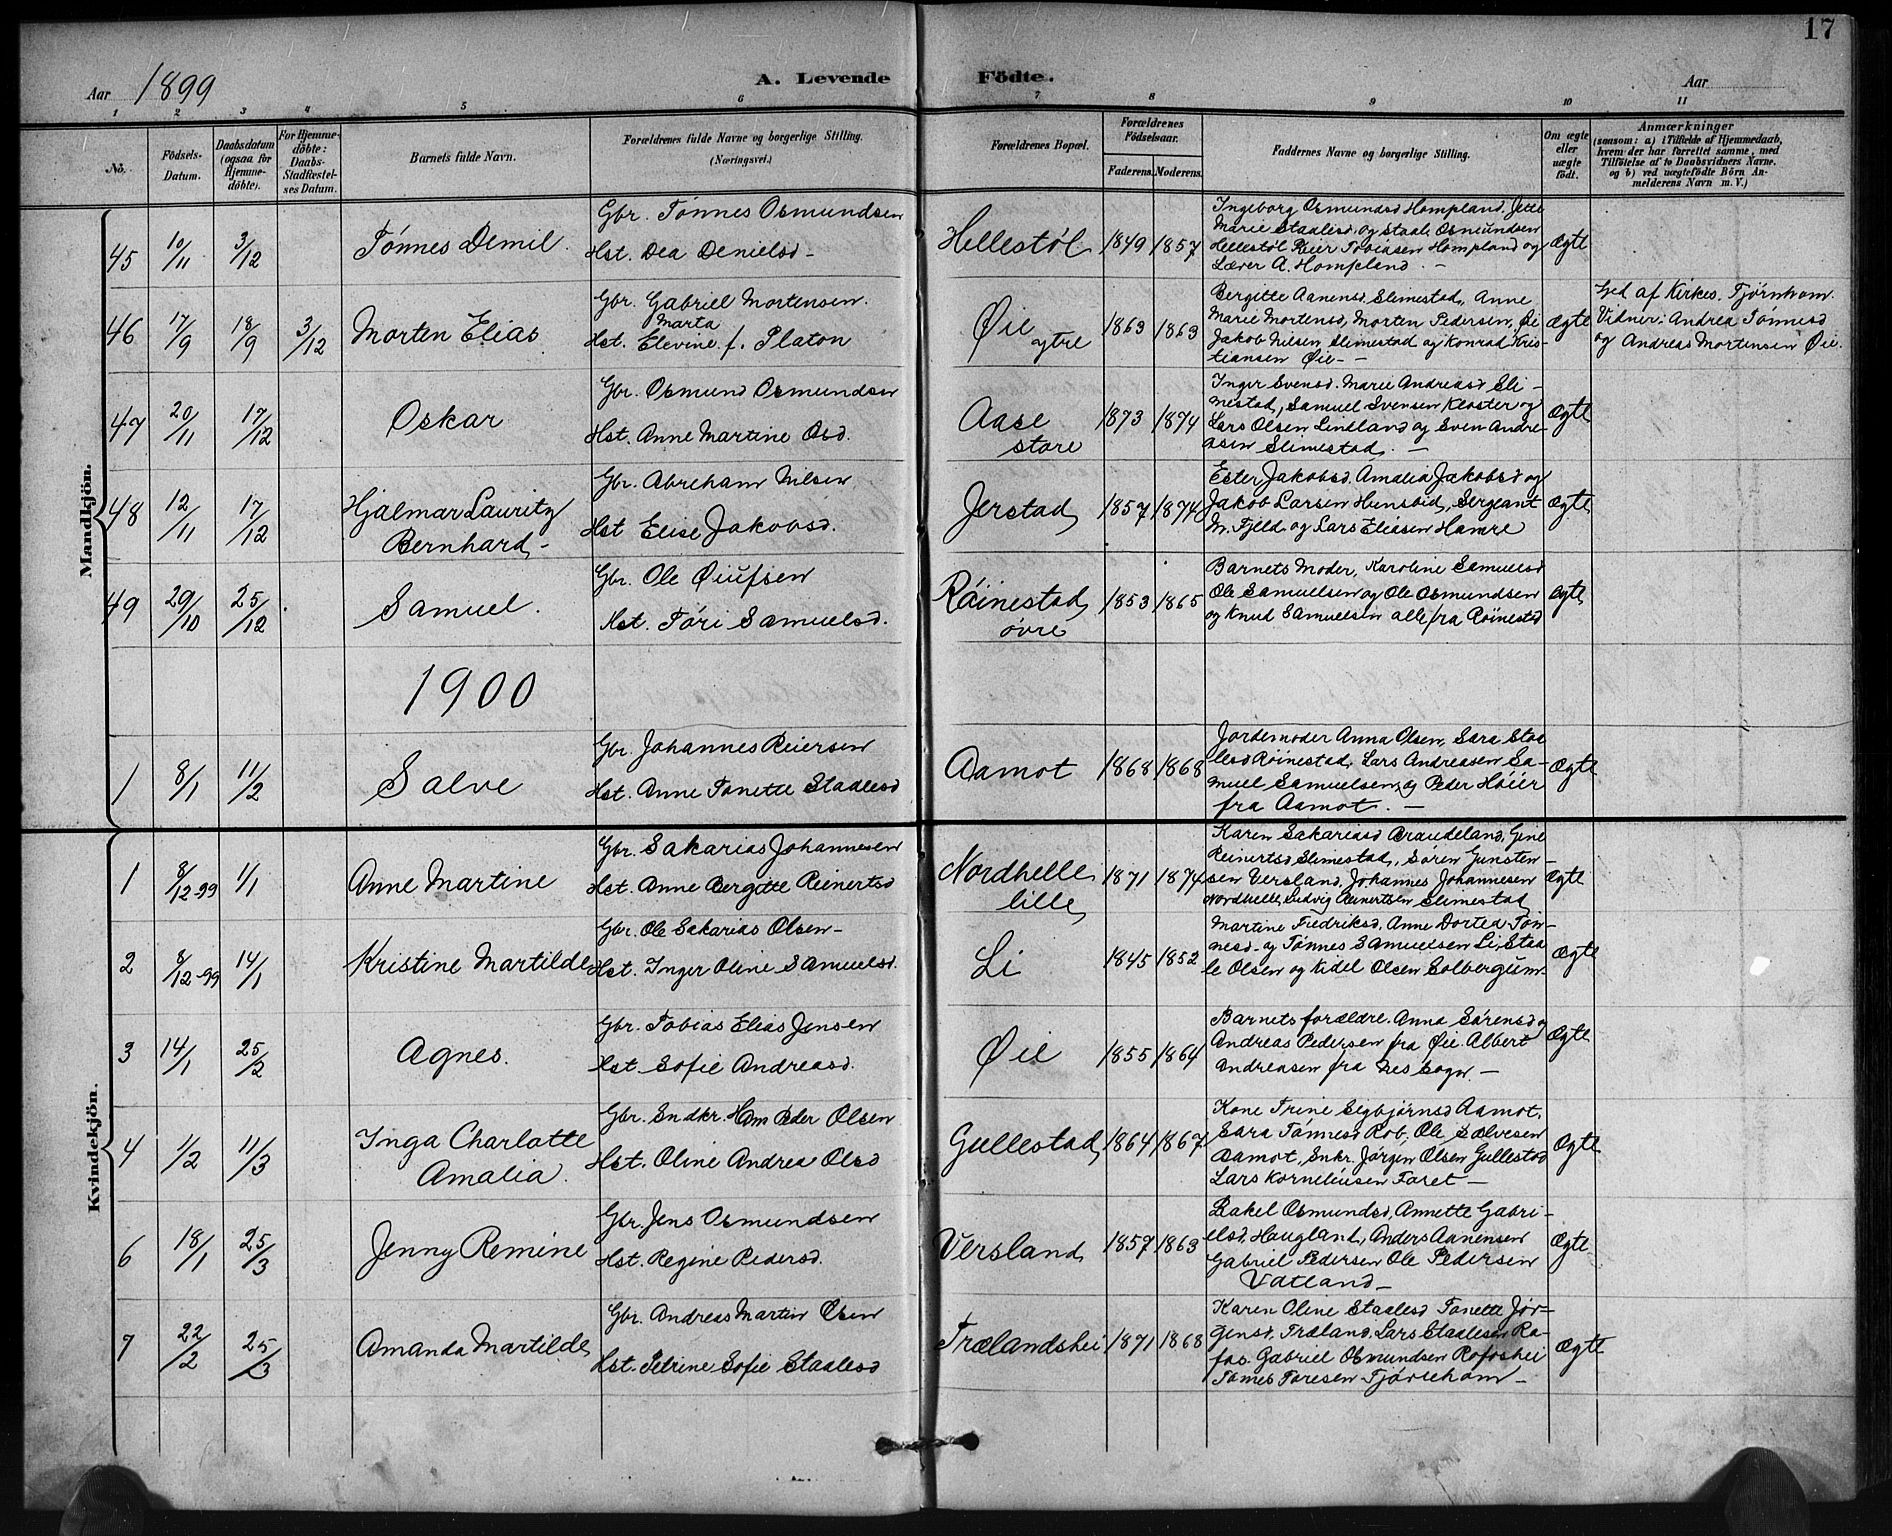 17
Aar 1899
A. Levende Födte.
Aar
1 2 3 4 5 6 7 8 9 10 11
No.
Födsels-Datum.
Daabsdatum (ogsaa for Hjemme-döbte).
For Hjemme-döbte: Daabs-Stadfæstel-ses Datum.
Barnets fulde Navn.
Forældrenes fulde Navne og borgerlige Stilling.
(Næringsvei.)
Forældrenes Bopæl.
Forældrenes Födselsaar.
Faderens. Moderens.
Faddernes Navne og borgerlige Stilling.
Om ægte eller uægte födt.
Anmærkninger
(saasom: a) i Tilfælde af Hjemmedaab,
hvem der har forrettet samme, med
Tilföielse af to Daabsvidners Navne.
og b) ved uægtefödte Börn An-
melderens Navn m. V.)
Mandkjön.
45 10/11 3/12 Tónnes Demil.
Gbr. Tónnes Osmundsen
Hst. Dea Denielsd -
Hellestøl 1849 1857
Ingeborg Osmundsd Hompland, Jette
Marie Staalesd, og Staale Osmundsen
Hellestøl Reier Tobiasen Hompland og
Lærer A. Hompland. -
Ægte
46 17/9 18/9 3/12 Morten Elias
Gbr. Gabriel Mortensen.
Marta
Hst. Elevine f. Platon
Øie
ytre
1863 1863
Bergitte Aanensd Slimestad, Anne
Marie Mortensd, Morten Pedersen, Øie
Jakob Nilsen Slimestad og Konrad Kris-
tiansen Øie - -
Ægte
Ged af Kirkes. Tjørnhom.
Vidner: Andrea Tønnesd
og Andreas Mortensen Øie.
47 20/11 17/12 Oskar
Gbr. Osmund Osmundsen
Hst. Anne Martine Osd.
Aase
store
1873 1874
Inger Svensd. Marie Andreasd Sli-
mestad, Samuel Svensen Kloster og
Lars Olsen Lindland og Sven Andre-
asen Slimestad. -
Ægte
48 12/11 17/12 Hjalmar Lauritz
Bernhard -
Gbr. Abreham Nilsen
Hst Elise Jakobsd.
Jerstad 1857 1874
Ester Jakobsd. Amalia Jakobsd og
Jakob Larsen Hunsbid, Sergeant
M. Fjeld og Lars Eliasen Hamre
Ægte
49 29/10 25/12 Samuel.
Gbr. Ole Øiufsen
Hst. Tóri Samuelsd.
Róinestad,
óvre
1853 1865
Barnets Moder, Karoline Samuelsd
Ole Samuelsen og Ole Osmundsen
og Knud Samuelsen alle fra Róinestad
Ægte
1900
1 8/1 11/2 Salve
Gbr. Johannes Reiersen
Hst. Anne Tonette Staalesd
Aamot 1868 1868
Jordemoder Anna Olsen, Sara Staa
lesd Róinestad, Lars Andreasen Sa-
muel Samuelsen og Peder Hóiér
fra Aamot. -
Ægte
Kvindekjön.
1 8/12-99 1/1 Anne Martine
Gbr. Sakarias Johannesen
Hst. Anne Bergitte Reinertsd
Nordhelle
lille
1871 1874
Karen Sakariasd Braudeland, Gine
Reinertsd Slimestad, Sören Gunsten-
sen Versland, Johannes Johannesen
Nordhelle, Ludvig Reinertsen Slimestad
Ægte
2 8/12-99 14/1 Kristine Martilde
Gbr. Ole Sakarias Olsen -
Hst. Inger Oline Samuelsd.
Li 1845 1852
Martine Fredriksd, Anne Dortea Tøn-
nesd - og Tønnes Samuelsen Li, Staa
le Olsen og Kidel Olsen Solbergum.
Ægte
3 14/1 25/2 Agnes.
Gbr. Tobias Elias Jensen
Hst. Sofie Andreasd.
Øie 1855 1864
Barnets forældre, Anna Sørensd og
Andreas Pedersen fra Øie. Albert
Andreasen fra Nes Sogn. -
Ægte
4 1/2 11/3 Inga Charlotte
Amalia.
Gbr. Sndkr. Hans Peder Olsen
Hst. Oline Andrea Olsd
Gullestad, 1864 1867
Kone Trine Segbjørnsd Aamot,
Sara Tónnesd Rob, Ole Salvesen
Aamot, Snkr. Jørgen Olsen Gullestad
Lars Korneliusen Faret -
Ægte
6 18/1 25/3 Jenny Remine
Gbr. Jens Osmundsen
Hst. Regine Pedersd.
Versland 1857 1863
Rakel Osmundsd, Annette Gabri-
elsd, Haugland, Anders Aanensen
Gabriel Pedersen Ole Pedersen
Vatland -
Ægte
7 22/2 25/3 Amanda Martilde
Gbr. Andreas Martin Olsen
Hst. Petrine Sofie Staalesd
Trælandshei 1871 1868
Karen Oline Staalesd Tonette Jør-
gensd, Træland, Lars Staalesen Ra-
fos. Gabriel Osmundsen Rafoshei
Tómes Toresen Tjørnhom -
Ægte